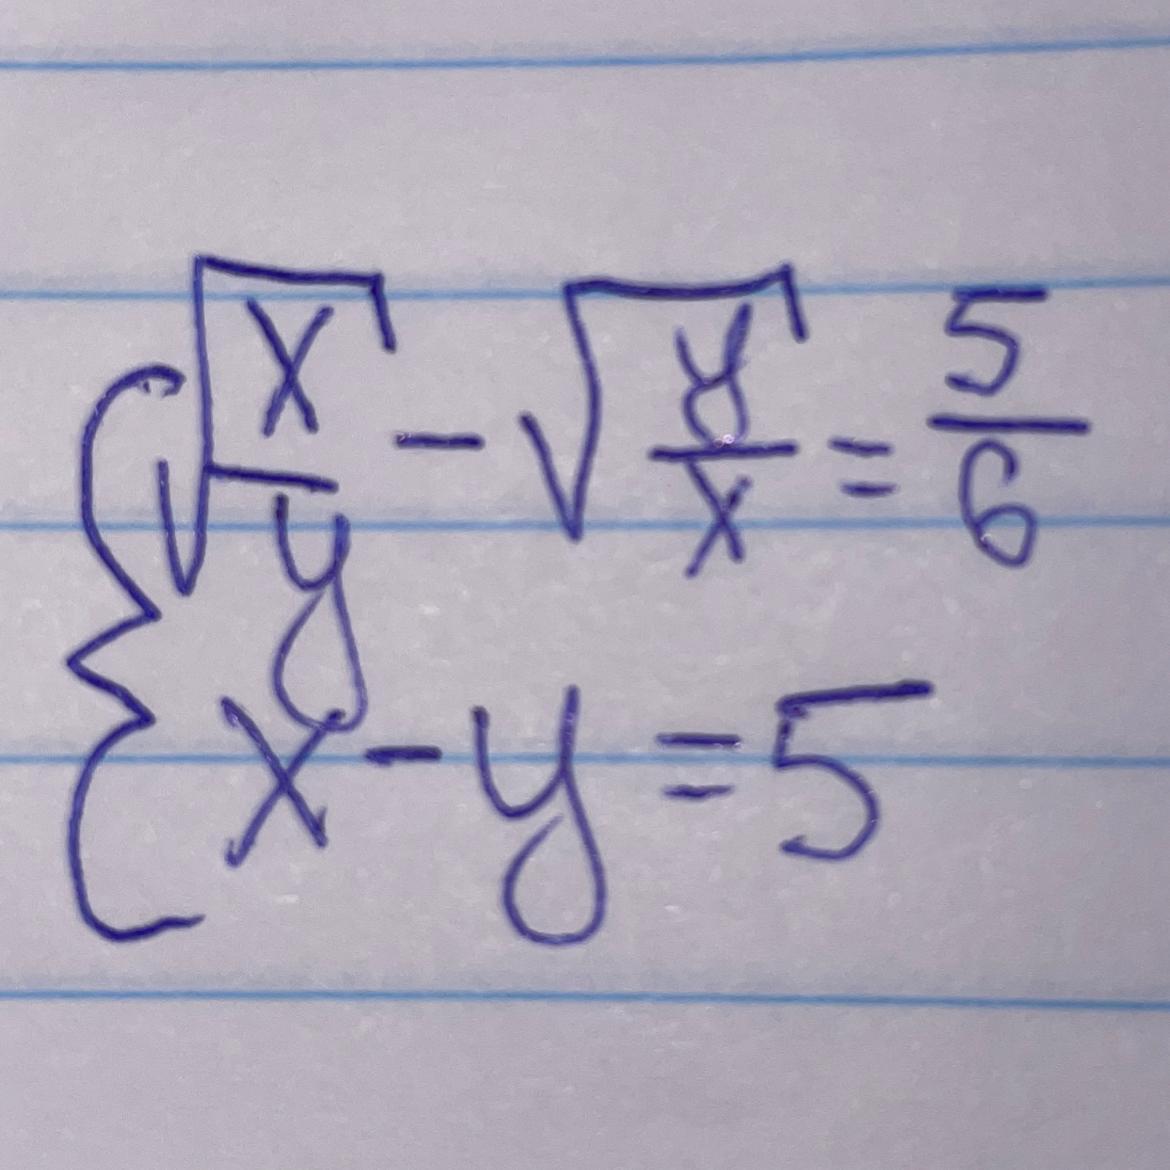 √(x/y) - √(y/x) = 5/6
x - y = 5